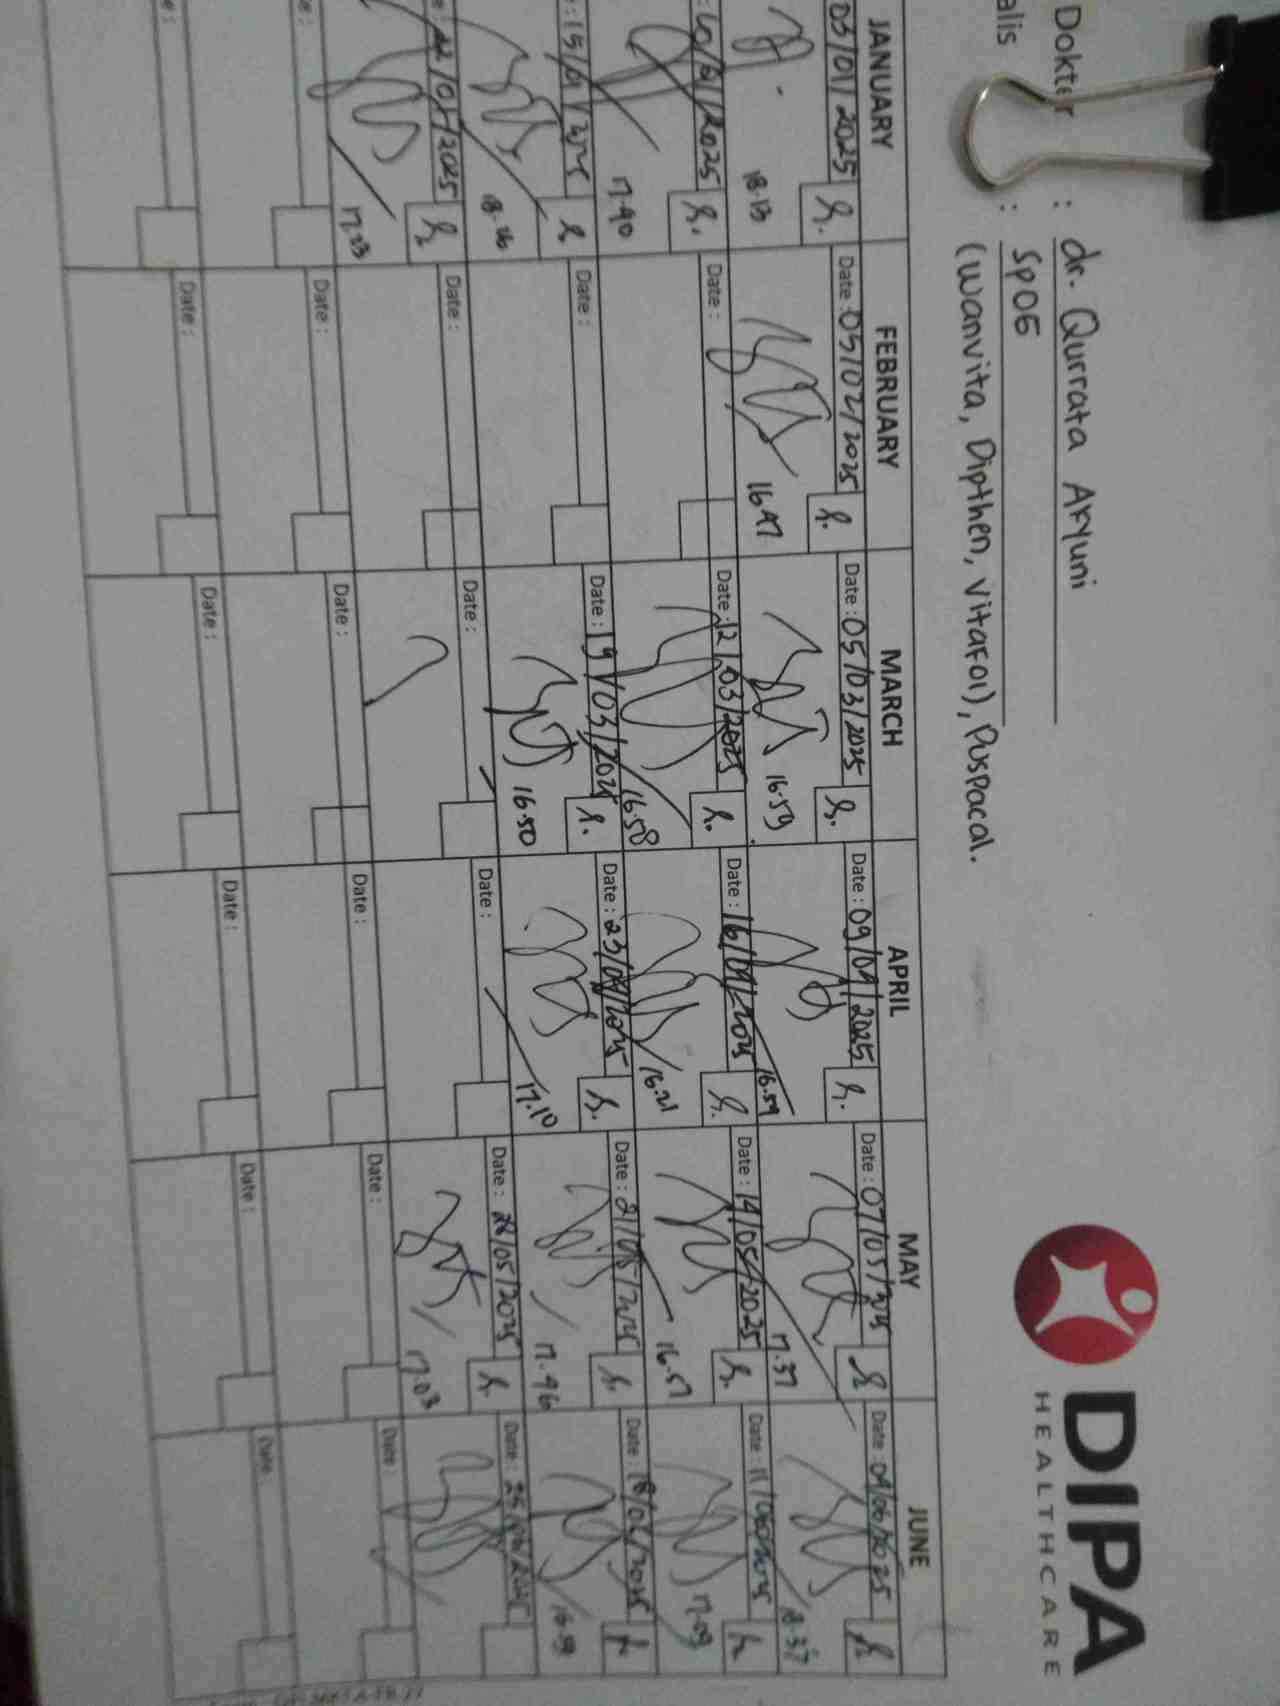 DIPA
HEALTHCARE
Dokter : dr. Qurrata Ayuni
alis : SpOG
(Wanvita, Dipthen, Vitafol), Puspacal.
JANUARY FEBRUARY MARCH APRIL MAY JUNE
03/01/2025 Date : 05/02/2025 Date : 05/03/2025 Date : 09/04/2025 Date : 07/05/2025 Date : 04/06/2025
18.13 16.47 16.59 16.59 17.37 18.37
Date : Date : 12/03/2025 Date : 16/04/2025 Date : 14/05/2025 Date : 11/06/2025
17.40 16.58 16.21 16.57 17.09
15/01/2025 Date : Date : 19/03/2025 Date : 23/04/2025 Date : 21/05/2025 Date : 18/06/2025
18.26 16.50 17.10 17.46 16.59
22/01/2025 Date : Date : Date : Date : 28/05/2025 Date : 25/06/2025
17.23 17.03
Date : Date : Date : Date : Date :
Date : Date : Date : Date : Date :